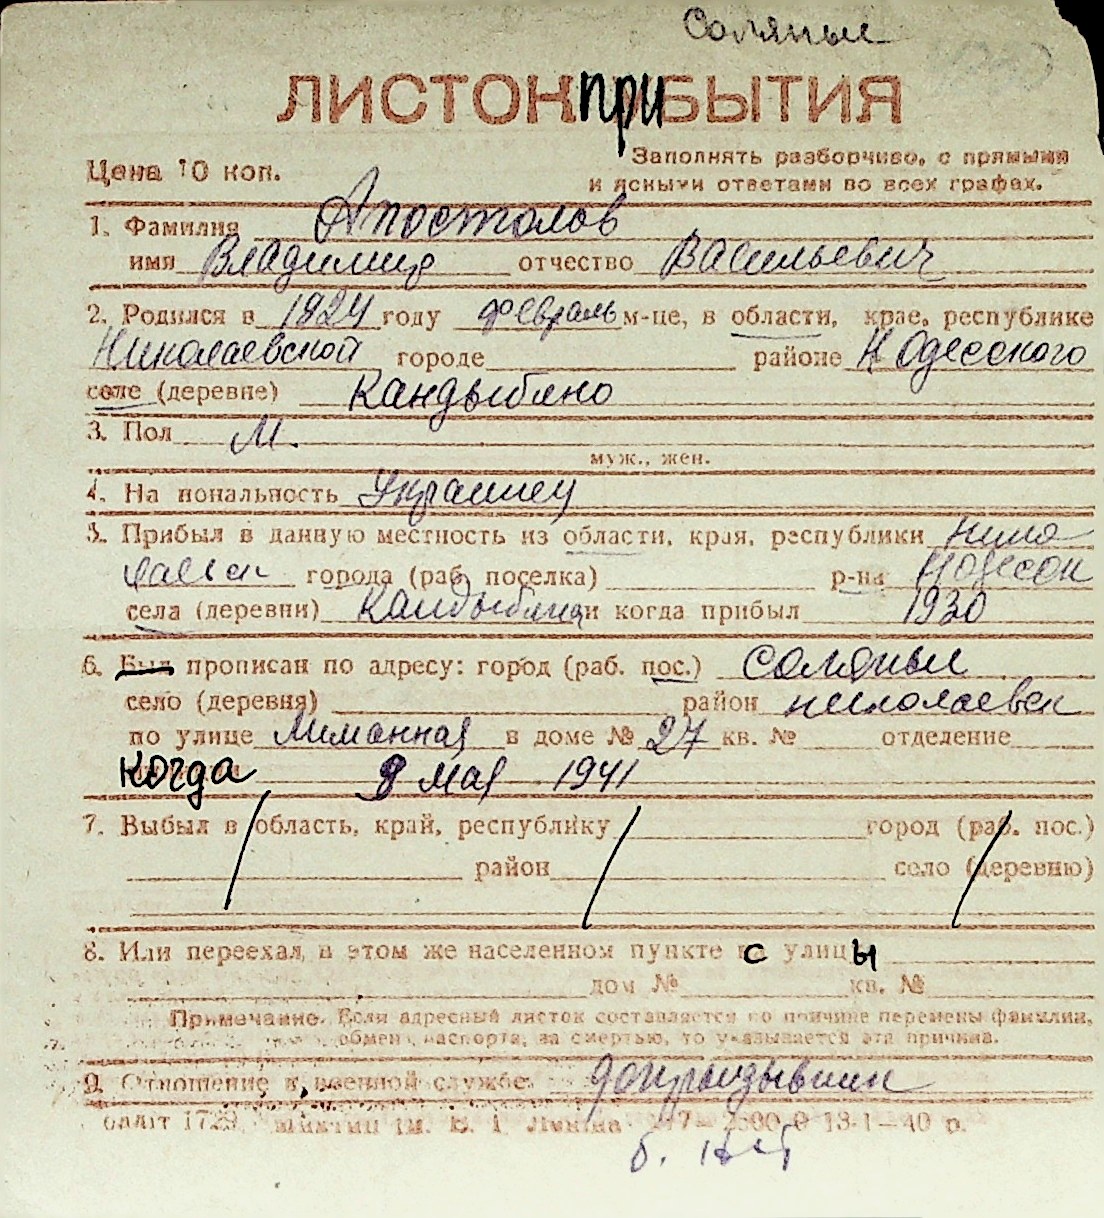 Соляные
ЛИСТОК ПРИБЫТИЯ
Цена 10 коп.
Заполнять разборчиво, с прямыми
и ясными ответами во всех графах.
1. Фамилия Апостолов
имя Владимир отчество Васильевич
2. Родился в 1924 году февраль м-це, в области, крае, республике
Николаевской городе районе Н Одесского
селе (деревне) Кандыбино
3. Пол М.
муж., жен.
4. На иональность Украинец
5. Прибыл в данную местность из области, края, республики Нико
лаевск города (раб. поселка) р-на Нодесск
села (деревни) Кандыбина и когда прибыл 1930
6. Был прописан по адресу: город (раб. пос.) Соляные
село (деревня) район николаевск
по улице Лиманная в доме № 27 кв. № отделение
когда 8 мая 1941
7. Выбыл в область, край, республику город (раб. пос.)
район село (деревню)
8. Или переехал в этом же населенном пункте с улицы
дом № кв. №
Примечание. Если адресный листок составляется по причине перемены фамилии,
обмен паспорта, за смертью, то указывается эта причина.
9. Отношение к военной службе допризывник
1729 Леніна 2600 13-1-40 р.
б.